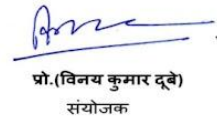 प्रो.(विनय कुमार दूबे)
संयोजक